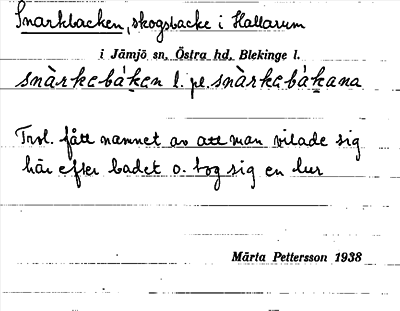 Snarkbacken, skogsbacke i Hallarum
i Jämjö sn, Östra hd, Blekinge l.
snàrkebáken l. pl. snàrkebákana
Trol. fått namnet av att man vilade sig
här efter badet o. tog sig en lur
Märta Pettersson 1938